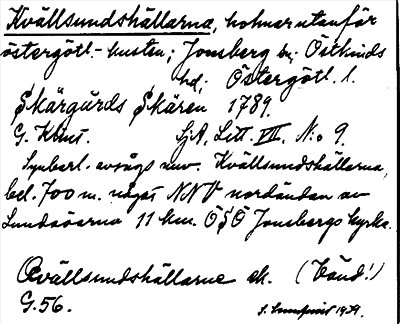 Kvällsundshällarna, holmar utanför
östergötl.-kusten; Jonsberg sn; Östkinds
hd; Östergötl. l.
Skärgårds Skären 1789.
G. Klint. SjA, Litt. VII. No 9.
Synbarl. avsågs nuv. Kvällsundshällarna,
bel. 700 m. något NNV nordändan av
Lundaöarna 11 km. ÖSÖ Jonsbergs kyrka.
Qvällsundshällarne ek. (Vänd!)
G. 56.
1939.